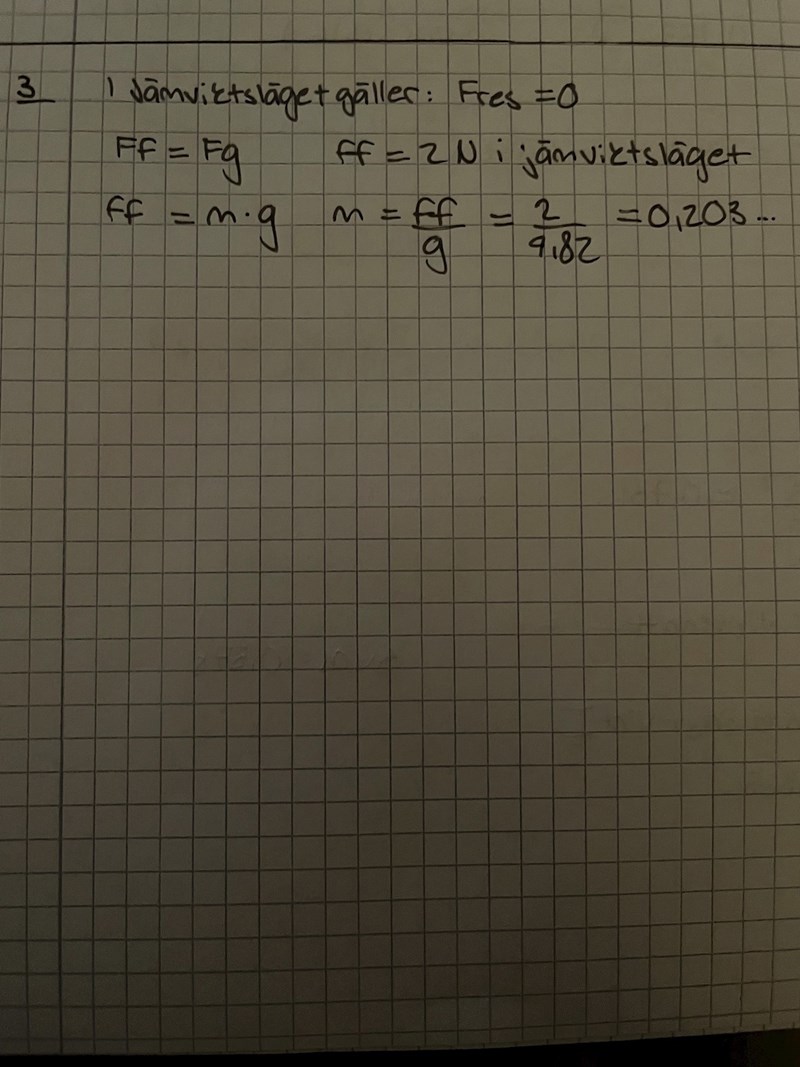 3 I Jämviktsläget gäller: Fres = 0
Ff = Fg Ff = 2 N i jämviktsläget
Ff = m · g m = Ff/g = 2/9,82 = 0,203...